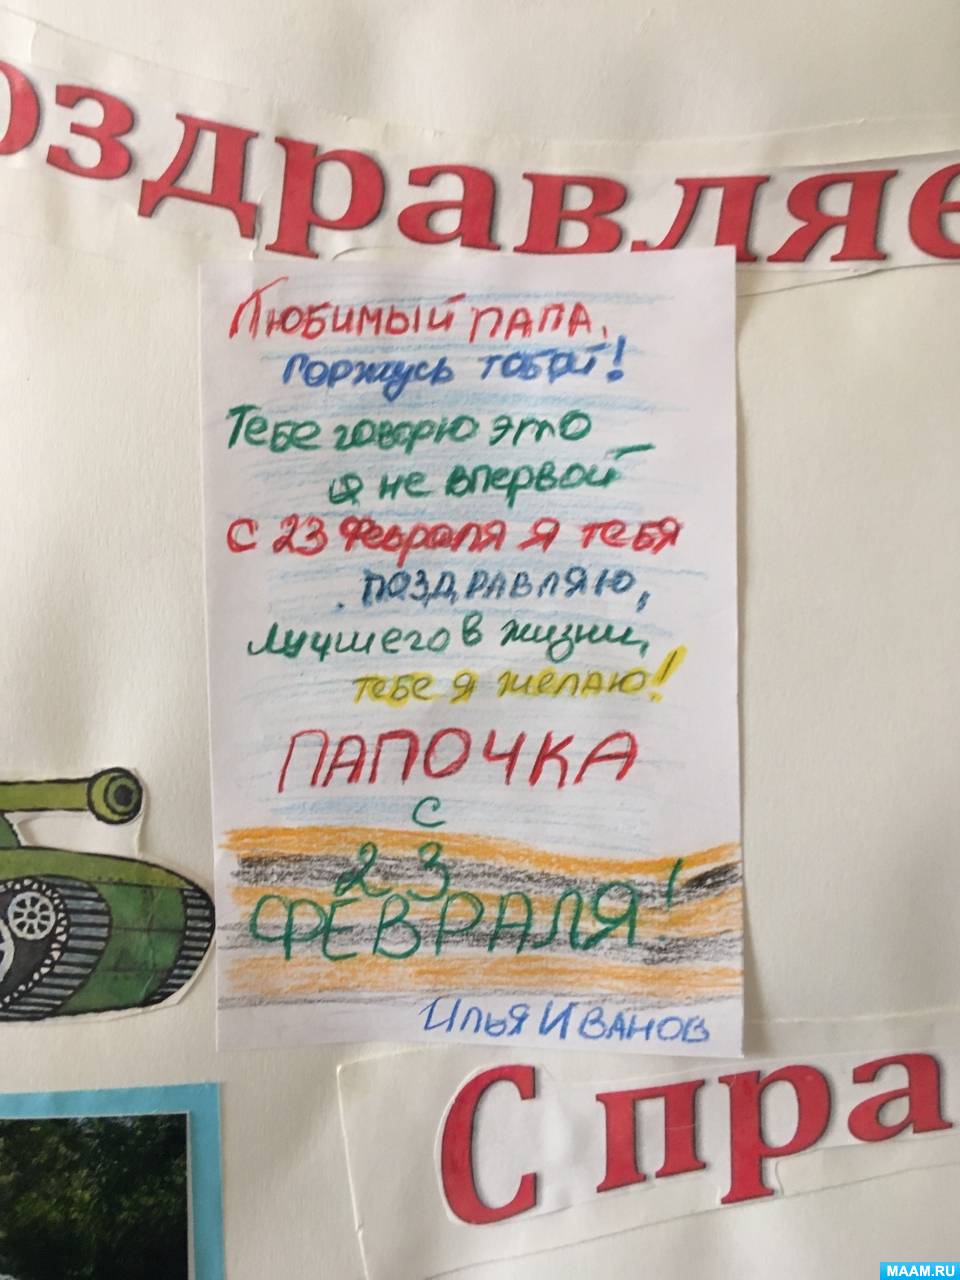 оздравляе
Любимый папа,
горжусь тобой!
Тебе говорю это
я не впервой
С 23 Февраля я тебя
поздравляю,
лучшего в жизни,
тебе я желаю!
ПАПОЧКА
С
23
ФЕВРАЛЯ!
Илья Иванов
С пра
MAAM.RU